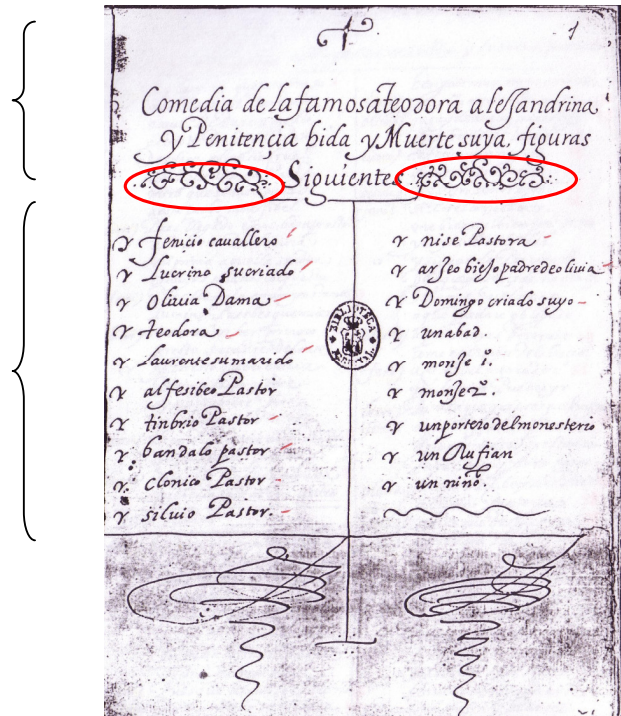 1
Comedia de la famosa teodora alessandrina
y Penitencia bida y Muerte suya, figuras
Siguientes
fenicio cauallero
Lucrino su criado
Oliuia Dama
teodora
laurente su marido
alfesibeo Pastor
tinbrio Pastor
bandalo pastor
clonico Pastor
siluio Pastor.
nise Pastora
arseo biejo padre de oliuia
Domingo criado suyo
un abad.
monje 1º.
monje 2º.
un portero del monesterio
un Rufian
un niño.
BIBLIOTECA